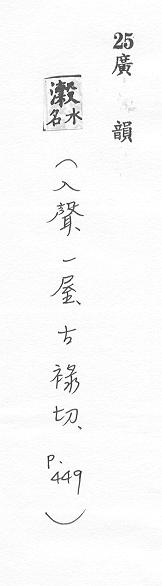 25廣韻
瀔水名
（入聲、一屋、古祿切、p.449）